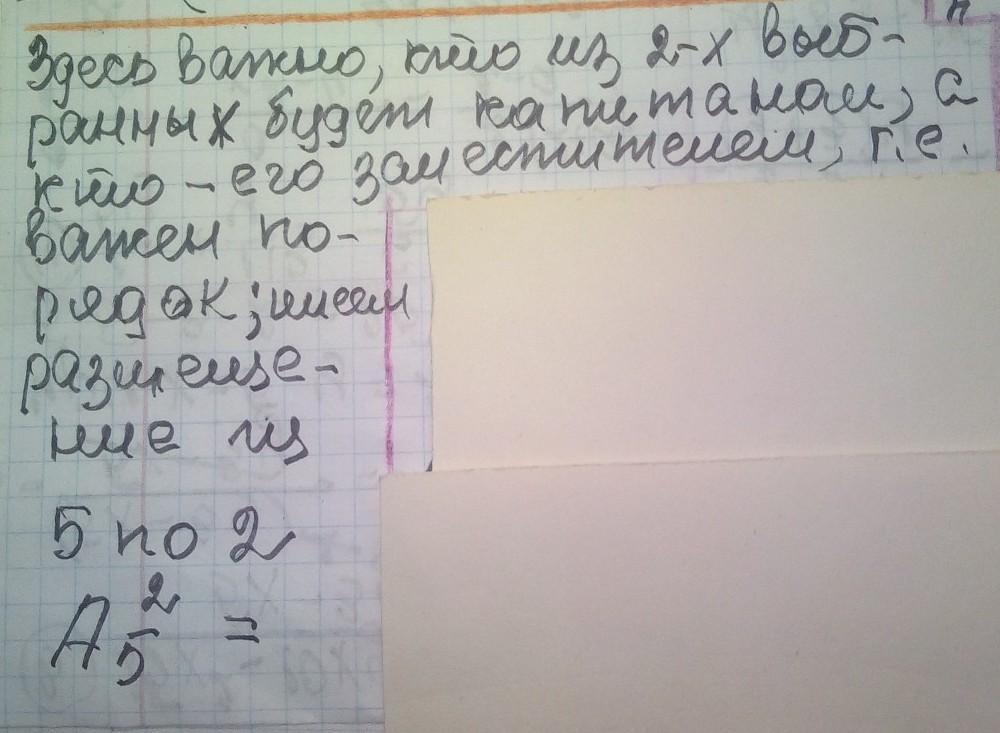 Здесь важно, кто из 2-х выб-
ранных будет капитаном, а
кто - его заместителем, т.е.
важен по-
рядок; имеем
размеще-
ние из
5 по 2
A₅² =